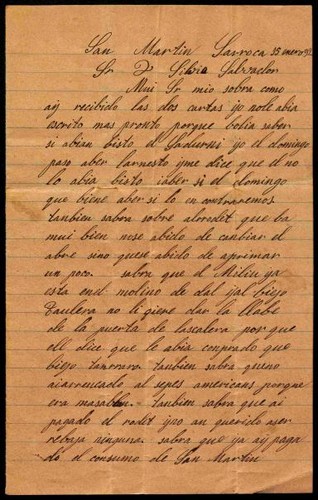 San Martin Sarroca 25 enero 92
Sr Dn Silvio Salvador
Mui Sr mio sobra como
aý recibido las dos cartas ýo nole abia
escrito mas pronto porque bolia saber
si abian bisto el Sadurni ýo el domingo
paso aber larnesto ýme dice que el no
lo abia bisto iaber si el domingo
que biene aber si lo encontraremos
tanbien sabra sobre alorodet que ba
mui bien nose abido de canbiar el
abre sino quese abido de aprimar
un poco. sabra que el Miliu ya
esta end molino de dal ýal biejo
Paulera no li giere dar la llabe
de la puerta de lascalera por que
ell dice que lo abia conprado que
biejo tanbien sabra queno
aiarrencado al sepes americans porque
era masable. tanbien sabra que ai
pagado el rodet ýno an querido aser
rebaja ninguna. sabra que ya aý paga
do el consumo de San Martin